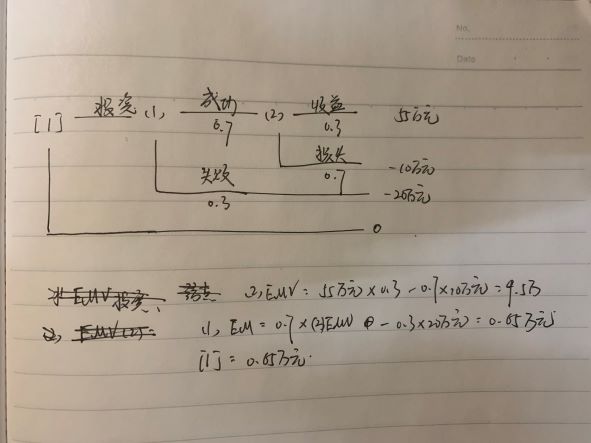 No.
Date
[1] 投资 (1) 成功 (2) 收益 55万元
0.7 0.3
损失 -10万元
失败 0.7 -20万元
0.3
0
EMV投资: 结点 (2) EMV = 55万元×0.3 - 0.7×10万元 = 9.5万
(2) EMV(2)= (1) EM = 0.7×(2)EMV - 0.3×20万元 = 0.65万元
[1] = 0.65万元.